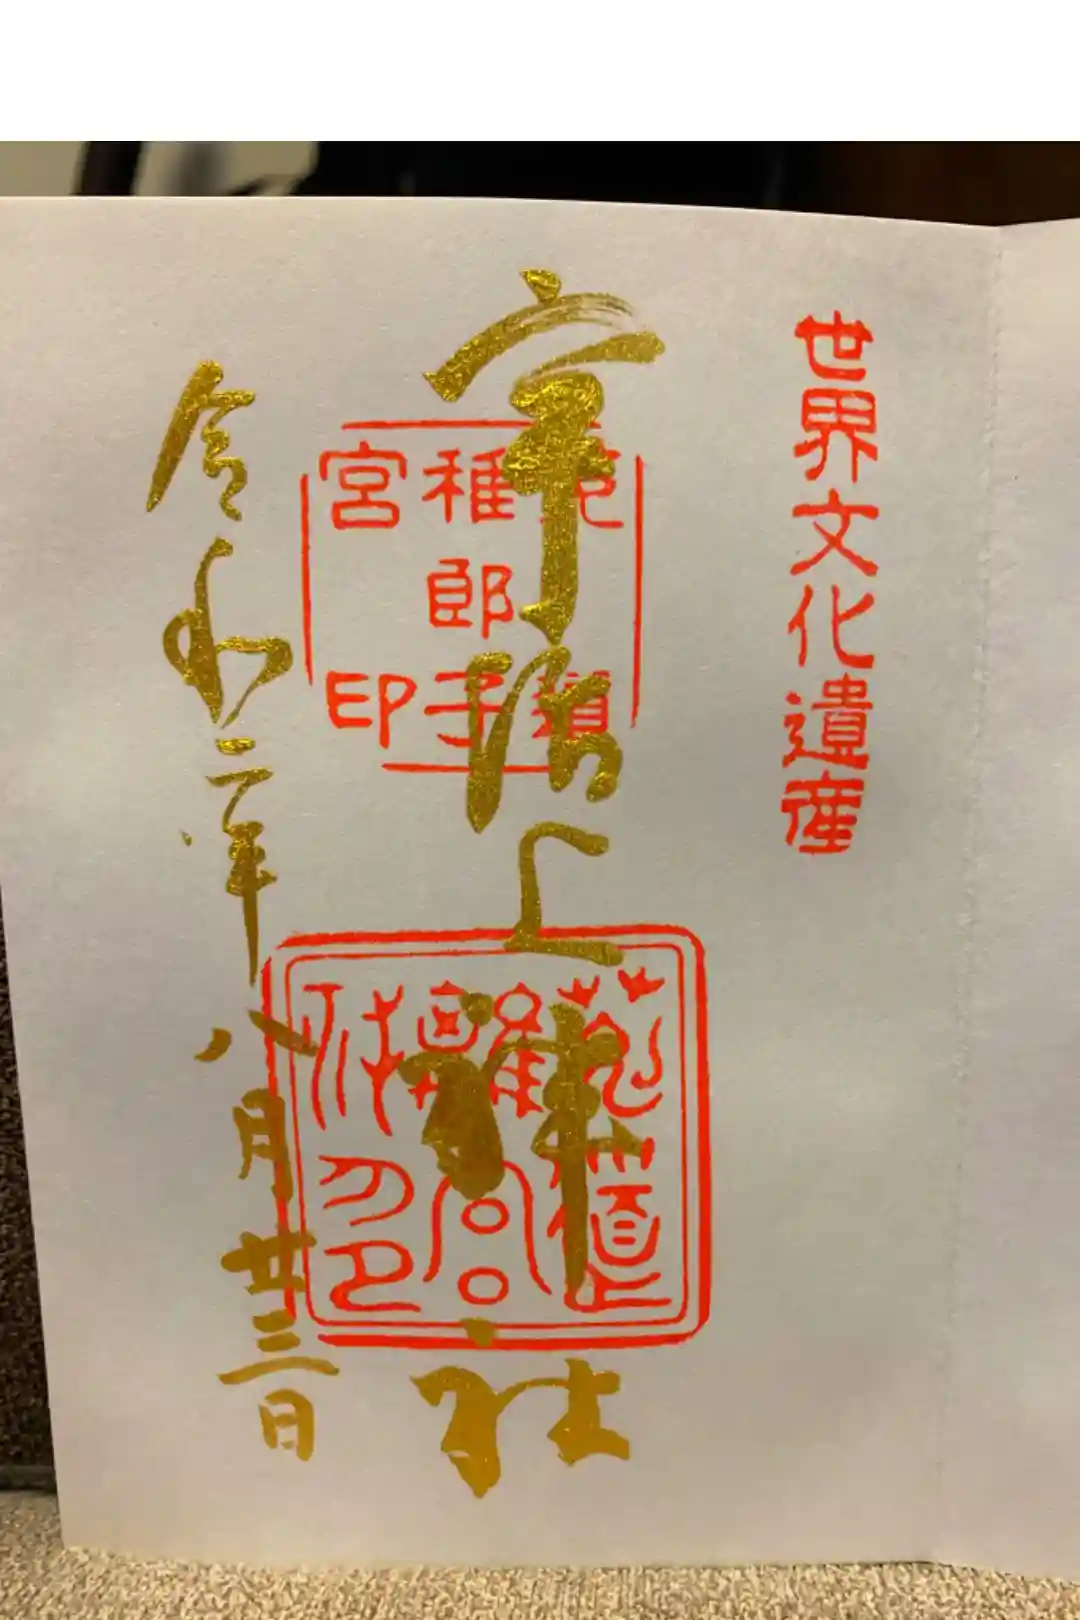 世界文化遺産
宇治上神社
令和二年八月廿三日
稚郎子
宮印
菟道
離宮